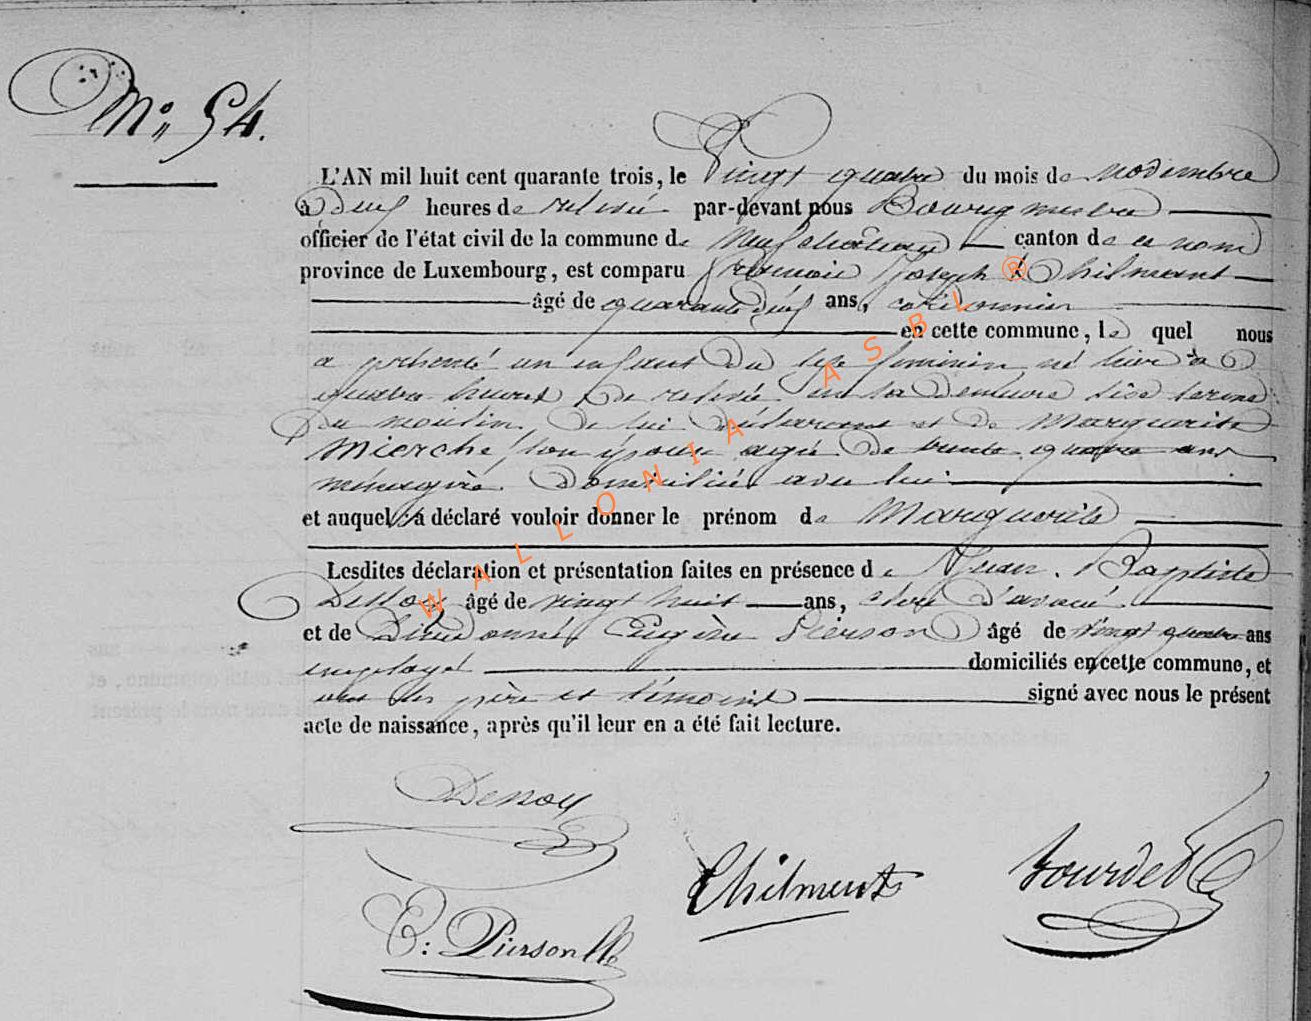 N° 54.
L'AN mil huit cent quarante trois, le Vingt quatre du mois de novembre
à deux heures de relevée par-devant nous Bourgmestre
officier de l'état civil de la commune de Neufchâteau canton de ce nom
province de Luxembourg, est comparu François Joseph Thilmant
âgé de quarante deux ans,
en cette commune, lequel nous
a présenté un enfant du sexe féminin, né hier à
quatre heures de relevée en sa demeure sise
du moulin, de lui déclarant et de Marguerite
Mierche son épouse agée de trente quatre ans
ménagère domiciliée avec lui
et auquel il a déclaré vouloir donner le prénom de Marguerite
Lesdites déclaration et présentation faites en présence de Jean Baptiste
Dessoy âgé de vingt huit ans, clerc d'avoué
et de Dieudonné Eugène Pierson âgé de vingt quatre ans
employé domiciliés en cette commune, et
ont les père et témoins signé avec nous le présent
acte de naissance, après qu'il leur en a été fait lecture.
WALLONIA ASBL ®
Dessoy
Thilmant
Bourdet
E: Pierson